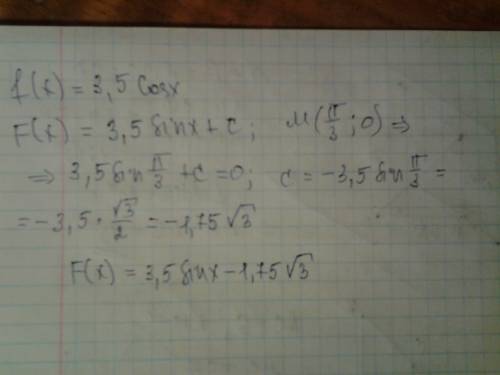 f(x) = 3,5 cosx
F(x) = 3,5 sinx + C; M(π/3; 0) ⇒
⇒ 3,5 sin π/3 + C = 0; C = -3,5 sin π/3 =
= -3,5 · √3/2 = -1,75 √3
F(x) = 3,5 sinx - 1,75 √3